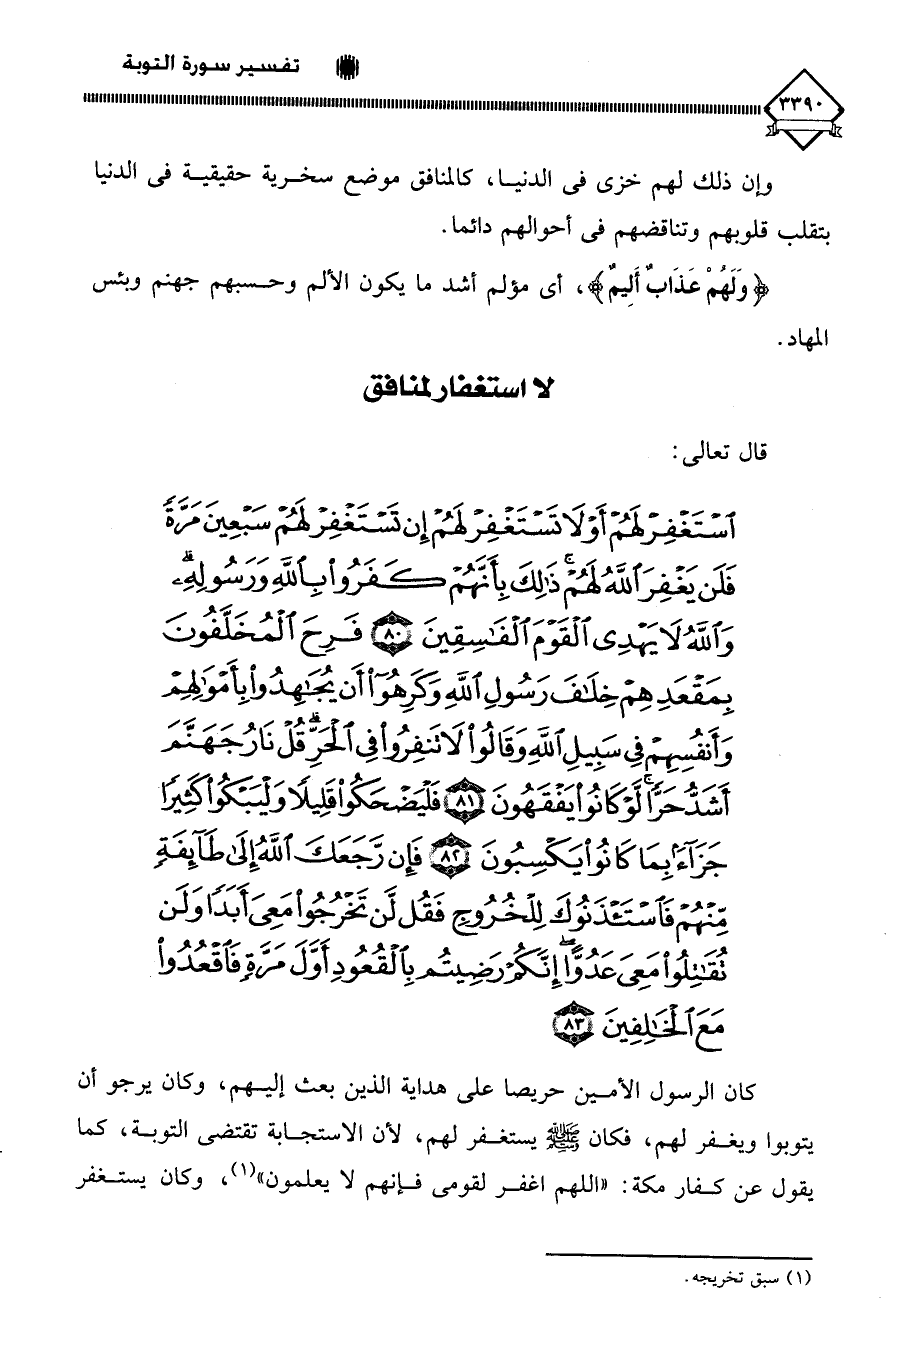 تفسير سورة التوبة
٣٣٩٠
وإن ذلك لهم خزى فى الدنيـا، كالمنافق موضع سخـرية حقيقيـة فى الدنيا
بتقلب قلوبهم وتناقضهم فى أحوالهم دائما.
﴿وَلَهُمْ عَذَابٌ أَلِيمٌ﴾، أى مؤلم أشد ما يكون الألم وحـسبهم جهنم وبئس
المهاد.
لا استغفار لمنافق
قال تعالى:
ٱسۡتَغۡفِرۡ لَهُمۡ أَوۡ لَا تَسۡتَغۡفِرۡ لَهُمۡ إِن تَسۡتَغۡفِرۡ لَهُمۡ سَبۡعِينَ مَرَّةٗ
فَلَن يَغۡفِرَ ٱللَّهُ لَهُمۡۚ ذَٰلِكَ بِأَنَّهُمۡ كَفَرُواْ بِٱللَّهِ وَرَسُولِهِۦۗ
وَٱللَّهُ لَا يَهۡدِى ٱلۡقَوۡمَ ٱلۡفَٰسِقِينَ ٨٠ فَرِحَ ٱلۡمُخَلَّفُونَ
بِمَقۡعَدِهِمۡ خِلَٰفَ رَسُولِ ٱللَّهِ وَكَرِهُوٓاْ أَن يُجَٰهِدُواْ بِأَمۡوَٰلِهِمۡ
وَأَنفُسِهِمۡ فِى سَبِيلِ ٱللَّهِ وَقَالُواْ لَا تَنفِرُواْ فِى ٱلۡحَرِّۗ قُلۡ نَارُ جَهَنَّمَ
أَشَدُّ حَرّٗاۚ لَّوۡ كَانُواْ يَفۡقَهُونَ ٨١ فَلۡيَضۡحَكُواْ قَلِيلٗا وَلۡيَبۡكُواْ كَثِيرٗا
جَزَآءَۢ بِمَا كَانُواْ يَكۡسِبُونَ ٨٢ فَإِن رَّجَعَكَ ٱللَّهُ إِلَىٰ طَآئِفَةٖ
مِّنۡهُمۡ فَٱسۡتَـٔۡذَنُوكَ لِلۡخُرُوجِ فَقُل لَّن تَخۡرُجُواْ مَعِىَ أَبَدٗا وَلَن
تُقَٰتِلُواْ مَعِىَ عَدُوًّاۖ إِنَّكُمۡ رَضِيتُم بِٱلۡقُعُودِ أَوَّلَ مَرَّةٖ فَٱقۡعُدُواْ
مَعَ ٱلۡخَٰلِفِينَ ٨٣
كان الرسول الأمـين حريصا على هداية الذين بعث إليـهم، وكان يرجو أن
يتوبوا ويغـفر لهم، فكان ﷺ يستغـفر لهم، لأن الاستجـابة تقتضى التوبـة، كما
يقول عن كـفار مكة: «اللهم اغفر لقومى فـإنهم لا يعلمون»(١)، وكان يستـغفر
(١) سبق تخريجه.